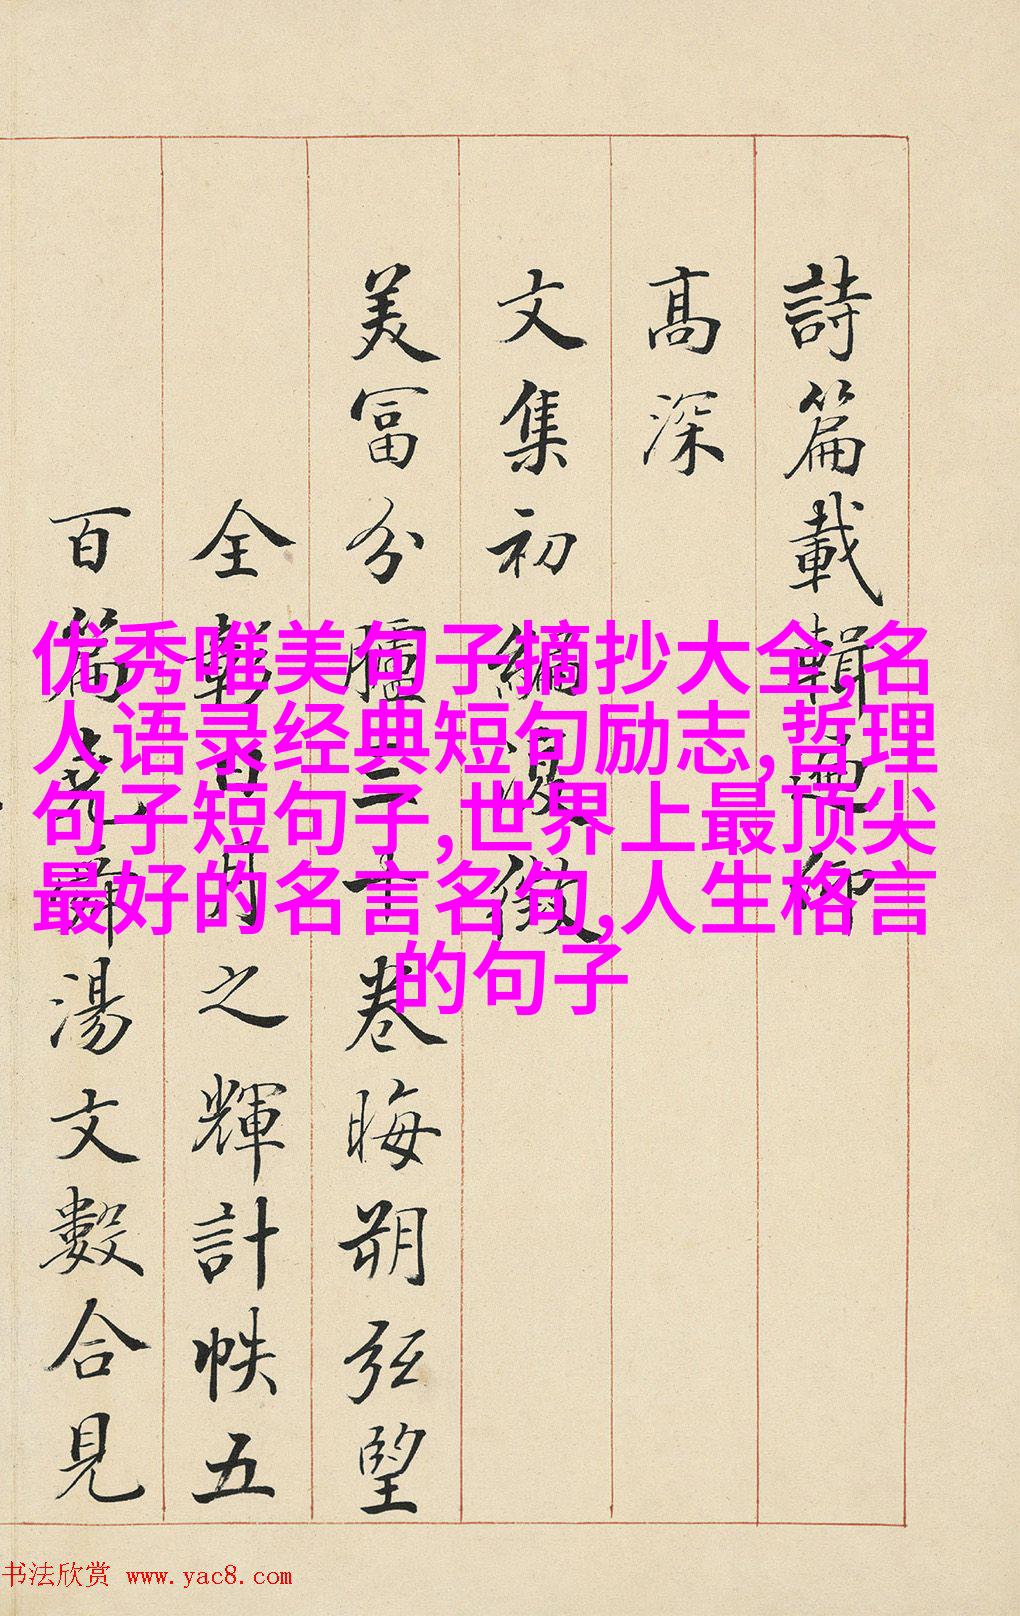 詩篇載輯迦卿
高深
文集初編復徵
美富分臚三十卷晦朔弦望
全彰日月之輝計帙五
百篇堯舜湯文數合見
优秀唯美句子摘抄大全,名
人语录经典短句励志,哲理
句子短句子,世界上最顶尖
最好的名言名句,人生格言
的句子
书法欣赏 www.yac8.com